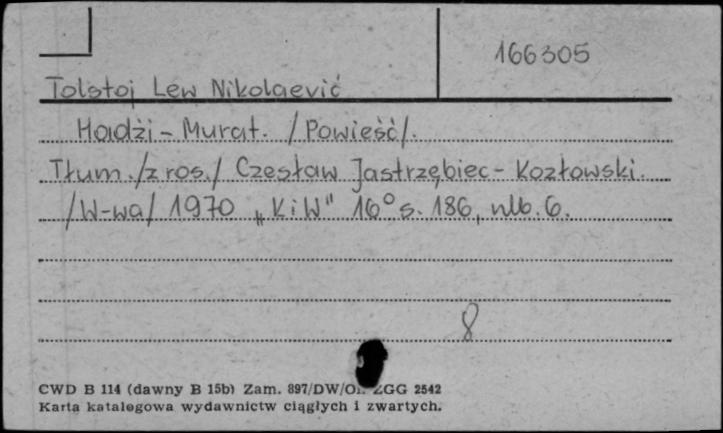 166305
Tolstoj Lew Nikolaevič
Hadżi-Murat. /Powieść/.
Tłum. /z ros./ Czesław Jastrzębiec-Kozłowski.
/W-wa/ 1970 „KiW" 16° s. 186, nlb. 6.
8
CWD B 114 (dawny B 15b) Zam. 897/DW/ ZGG 2542
Karta katalogowa wydawnictw ciągłych i zwartych.